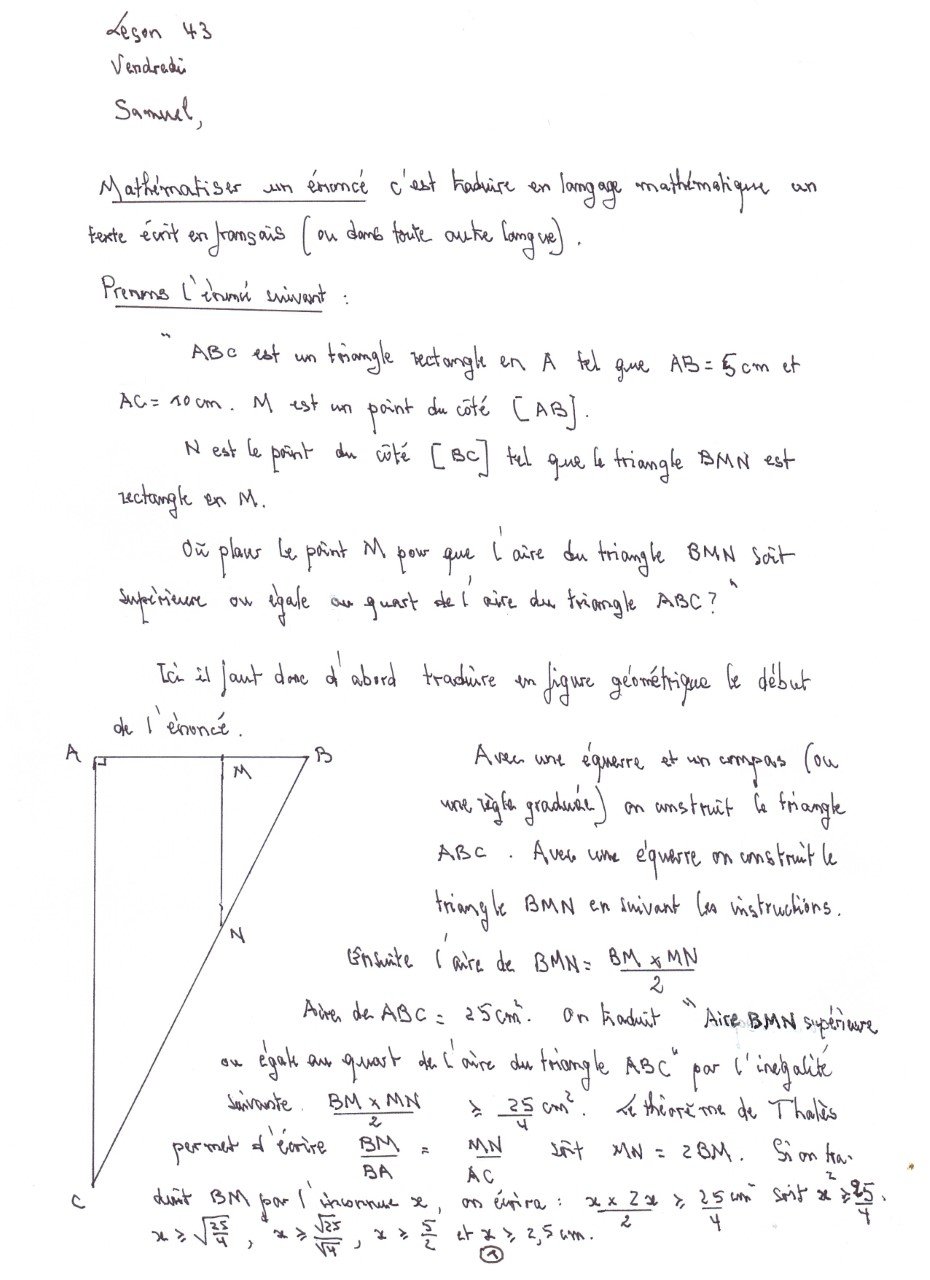 Leçon 43
Vendredi
Samuel,
Mathématiser un énoncé c'est traduire en langage mathématique un
texte écrit en français (ou dans toute autre langue).
Prenons l'énoncé suivant :
" ABC est un triangle rectangle en A tel que AB = 5 cm et
AC = 10 cm. M est un point du côté [AB].
N est le point du côté [BC] tel que le triangle BMN est
rectangle en M.
Où placer le point M pour que l'aire du triangle BMN soit
supérieure ou égale au quart de l'aire du triangle ABC ? "
Ici il faut donc d'abord traduire en figure géométrique le début
de l'énoncé.
A
B
M
N
C
Avec une équerre et un compas (ou
une règle graduée) on construit le triangle
ABC. Avec une équerre on construit le
triangle BMN en suivant les instructions.
Ensuite l'aire de BMN = BM × MN / 2
Aire de ABC = 25 cm². On traduit " Aire BMN supérieure
ou égale au quart de l'aire du triangle ABC " par l'inégalité
suivante BM × MN / 2 ≥ 25/4 cm². Le théorème de Thalès
permet d'écrire BM/BA = MN/AC soit MN = 2BM. Si on tra-
duit BM par l'inconnue x, on écrira : x × 2x / 2 ≥ 25/4 cm² soit x² ≥ 25/4.
x ≥ √25/4, x ≥ √25/√4, x ≥ 5/2 et x ≥ 2,5 cm.
1